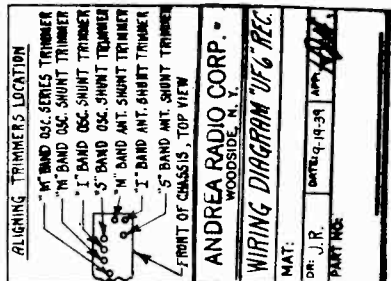 ALIGNING TRIMMERS LOCATION
"M" BAND OSC. SERIES TRIMMER
"M" BAND OSC. SHUNT TRIMMER
"I" BAND OSC. SHUNT TRIMMER
"S" BAND OSC. SHUNT TRIMMER
"M" BAND ANT. SHUNT TRIMMER
"I" BAND ANT. SHUNT TRIMMER
"S" BAND ANT. SHUNT TRIMMER
FRONT OF CHASSIS, TOP VIEW
ANDREA RADIO CORP.
WOODSIDE, N. Y.
WIRING DIAGRAM "UF6" REC.
MAT:
DR: J.R. DATE: 9-19-39 APP.
PART NO: